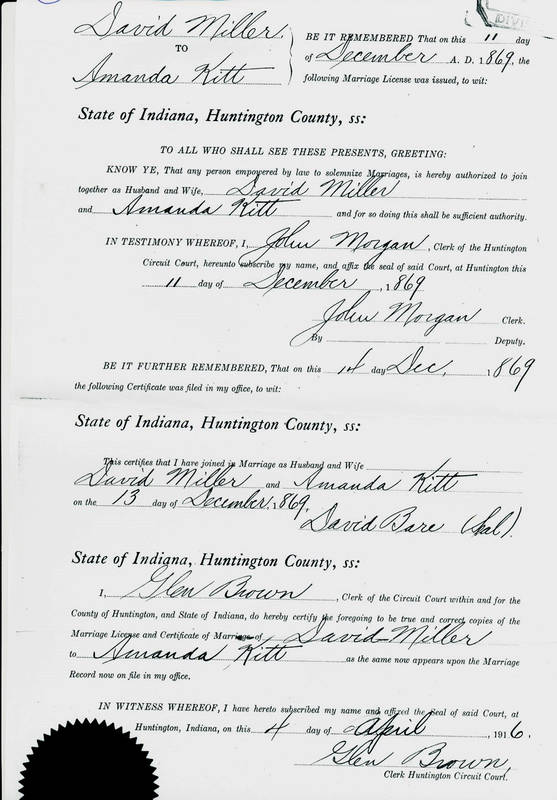 DIVI
David Miller
TO
Amanda Kitt
BE IT REMEMBERED That on this 11 day
of December A. D. 1869, the
following Marriage License was issued, to wit:
State of Indiana, Huntington County, ss:
TO ALL WHO SHALL SEE THESE PRESENTS, GREETING:
KNOW YE, That any person empowered by law to solemnize Marriages, is hereby authorized to join
together as Husband and Wife, David Miller
and Amanda Kitt and for so doing this shall be sufficient authority.
IN TESTIMONY WHEREOF, I, John Morgan, Clerk of the Huntington
Circuit Court, hereunto subscribe my name, and affix the seal of said Court, at Huntington this
11 day of December, 1869
John Morgan Clerk.
By Deputy.
BE IT FURTHER REMEMBERED, That on this 14 day Dec, 1869
the following Certificate was filed in my office, to wit:
State of Indiana, Huntington County, ss:
This certifies that I have joined in Marriage as Husband and Wife
David Miller and Amanda Kitt
on the 13 day of December, 1869,
David Bare (Seal).
State of Indiana, Huntington County, ss:
I, Glen Brown, Clerk of the Circuit Court within and for the
County of Huntington, and State of Indiana, do hereby certify the foregoing to be true and correct copies of the
Marriage License and Certificate of Marriage of David Miller
to Amanda Kitt as the same now appears upon the Marriage
Record now on file in my office.
IN WITNESS WHEREOF, I have hereto subscribed my name and affixed the Seal of said Court, at
Huntington, Indiana, on this 4 day of April, 1916.
Glen Brown,
Clerk Huntington Circuit Court.